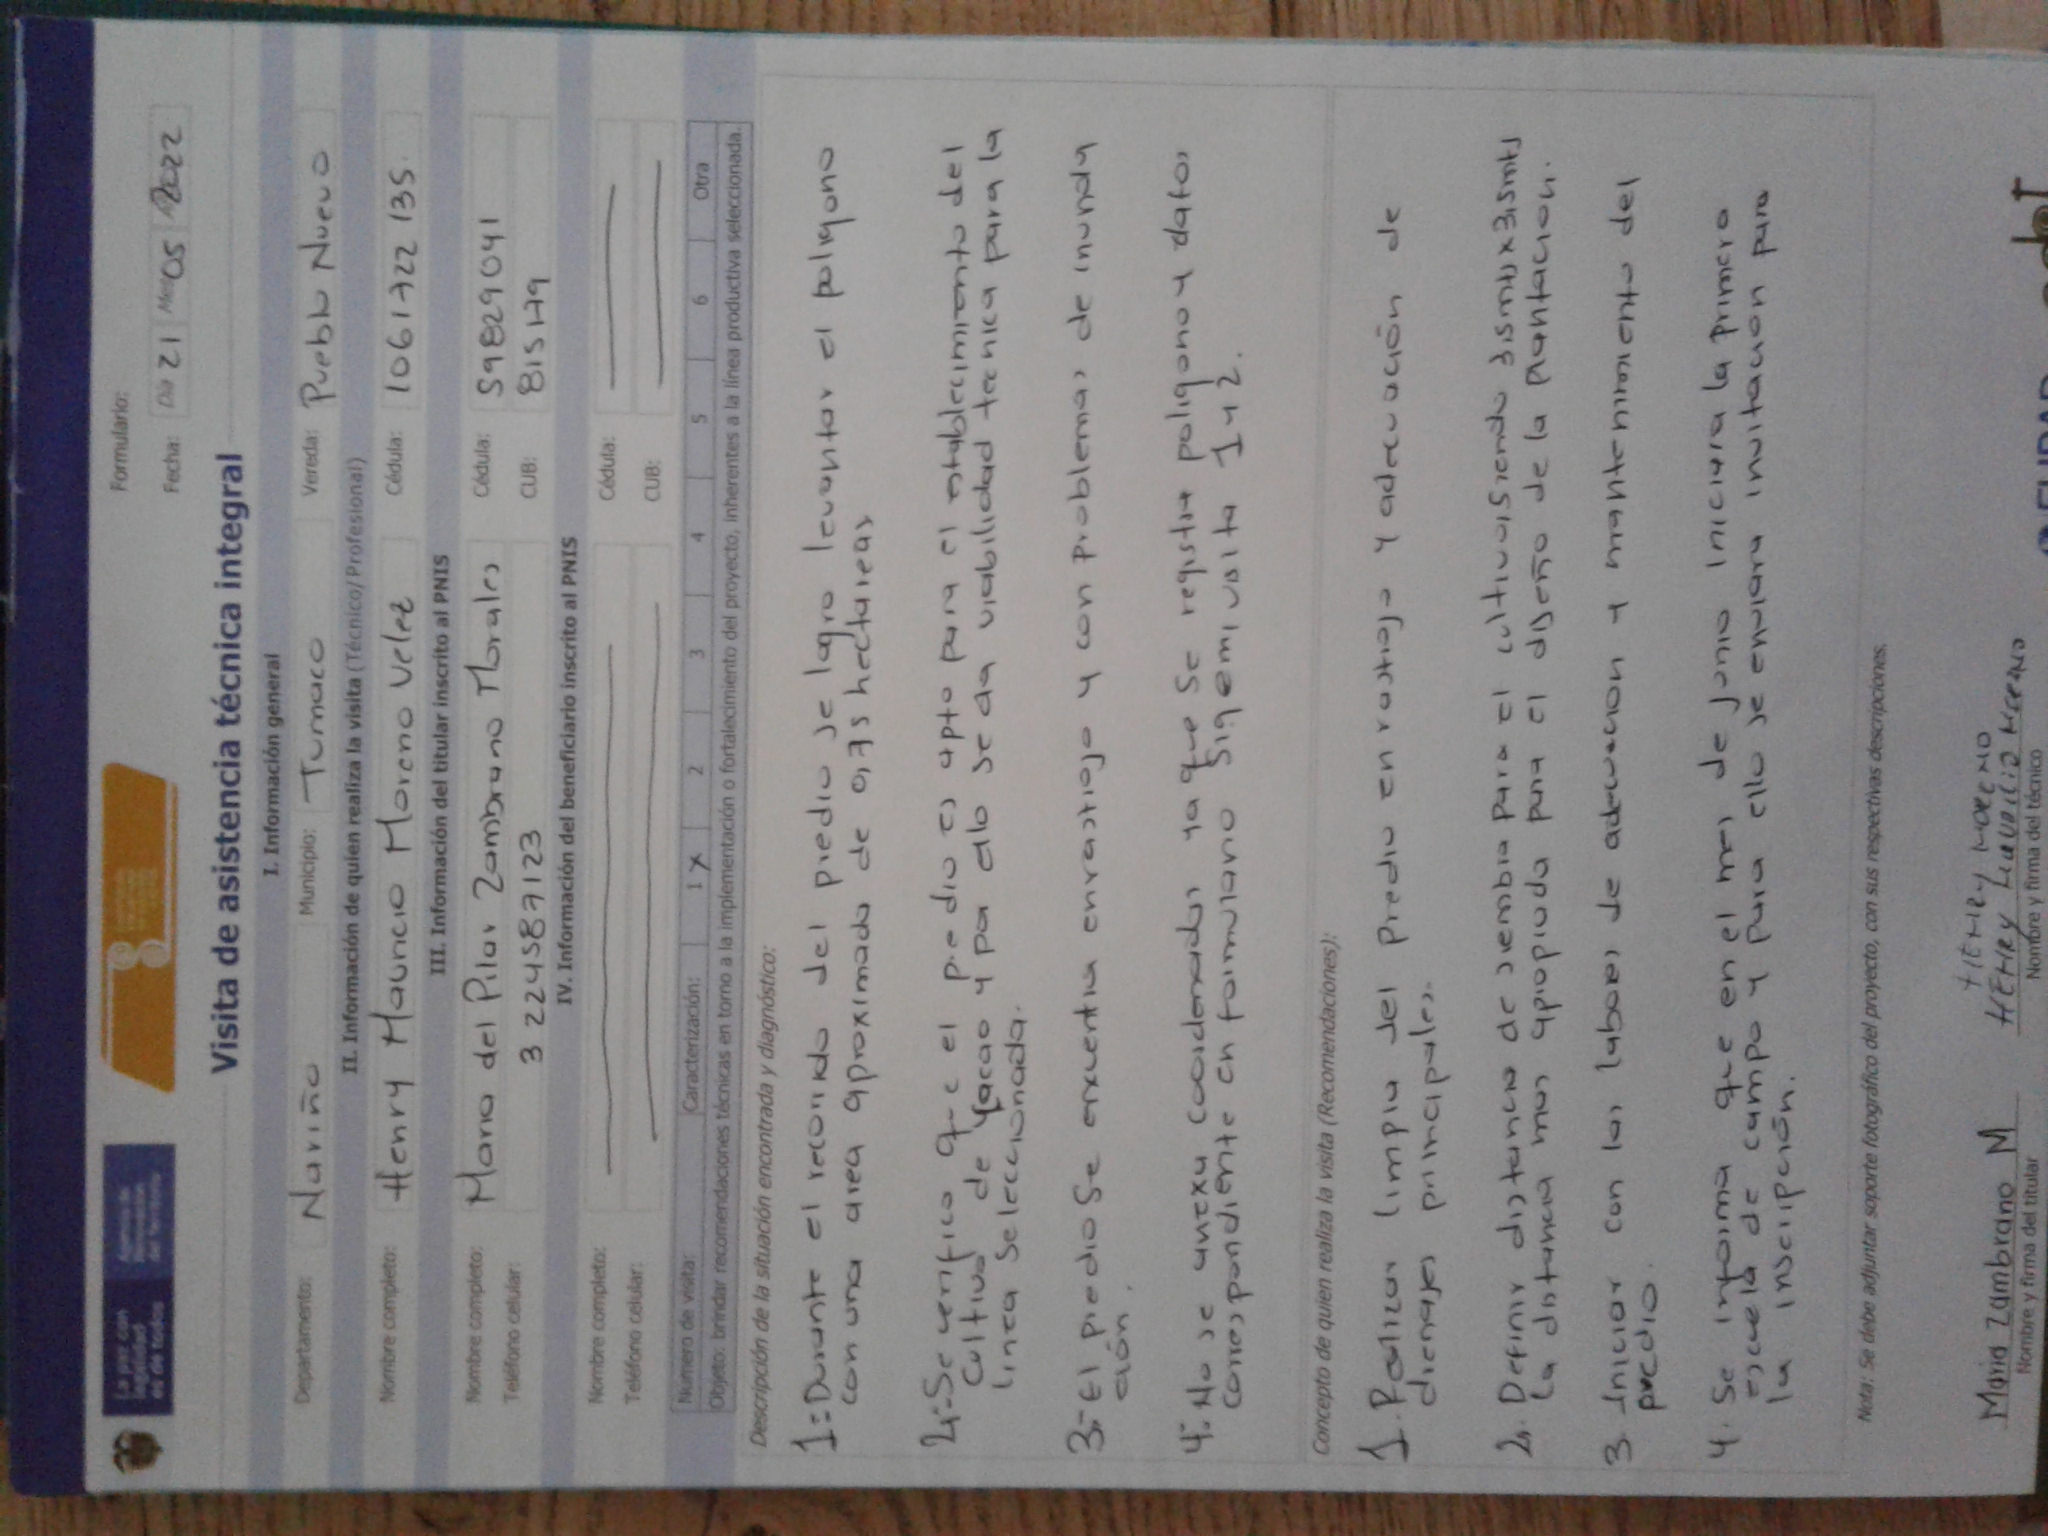 La paz con
legalidad
es de todos
Formulario:
Fecha: Día 21 Mes 05 2022
Visita de asistencia técnica integral
I. Información general
Departamento: Nariño Municipio: Tumaco Vereda: Pueblo Nuevo
II. Información de quien realiza la visita (Técnico/Profesional)
Nombre completo: Henry Mauricio Moreno Velez Cédula: 1061722135.
III. Información del titular inscrito al PNIS
Nombre completo: Maria del Pilar Zambrano Morales Cédula: 59829041
Teléfono celular: 3 22458 7123 CUB: 815179
IV. Información del beneficiario inscrito al PNIS
Nombre completo: Cédula:
Teléfono celular: CUB:
Número de visita: Caracterización: 1 X 2 3 4 5 6 Otra
Objeto: brindar recomendaciones técnicas en torno a la implementación o fortalecimiento del proyecto, inherentes a la línea productiva seleccionada.
Descripción de la situación encontrada y diagnóstico:
1=Durante el recorrido del predio se logro levantar el poligono
con una area aproximada de 0,75 hectareas
2.-Se verifico que el predio es apto para el establecimiento del
cultivo de Cacao y por ello se da viabilidad tecnica para la
linea seleccionada.
3.-El predio Se encuentra enrastrojo y con problemas de inunda
ción.
4.-No se anexa coordenadas ya que Se registra poligono y datos
correspondiente en formulario Sigemi visita 1 y 2.
Concepto de quien realiza la visita (Recomendaciones):
1. Realizar limpia del predio enrastrojo y adecuación de
drenajes principales.
2. Definir distancia de siembra para el cultivo,siendo 3,5mts x 3,5mts
La distancia mas apropiada para el diseño de la plantacion.
3. Iniciar con las labores de adecuacion y mantenimiento del
predio.
4. Se informa que en el mes de junio iniciara la primera
escuela de campo y para ello se enviara invitacion para
la inscripción.
Nota: Se debe adjuntar soporte fotográfico del proyecto, con sus respectivas descripciones.
HENRY MORENO
Maria Zambrano M HENRY MAURICIO MORENO
Nombre y firma del titular Nombre y firma del técnico